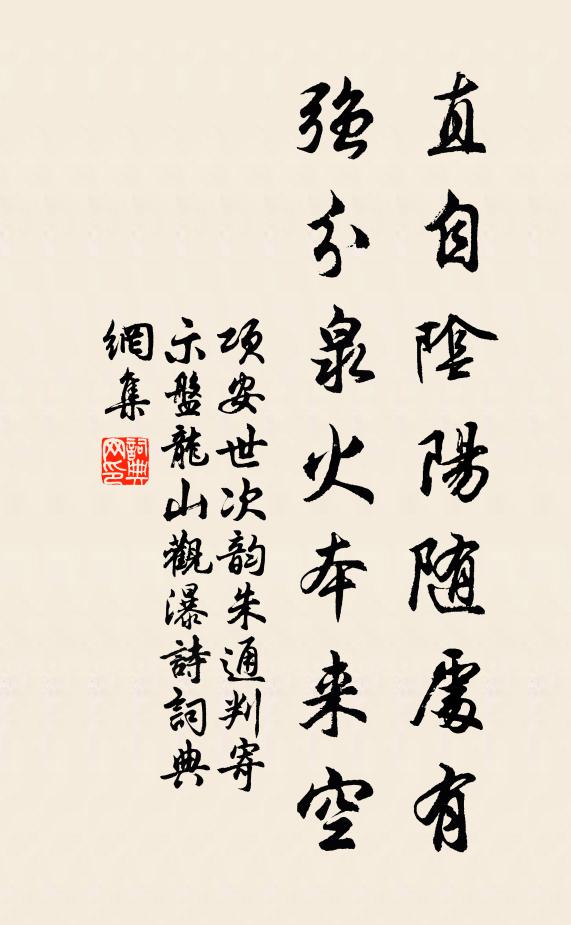 直自陰陽随處有
強分泉火本来空
項安世次韵朱通判寄
示盤龍山觀瀑詩詞典
網集
詞典網印